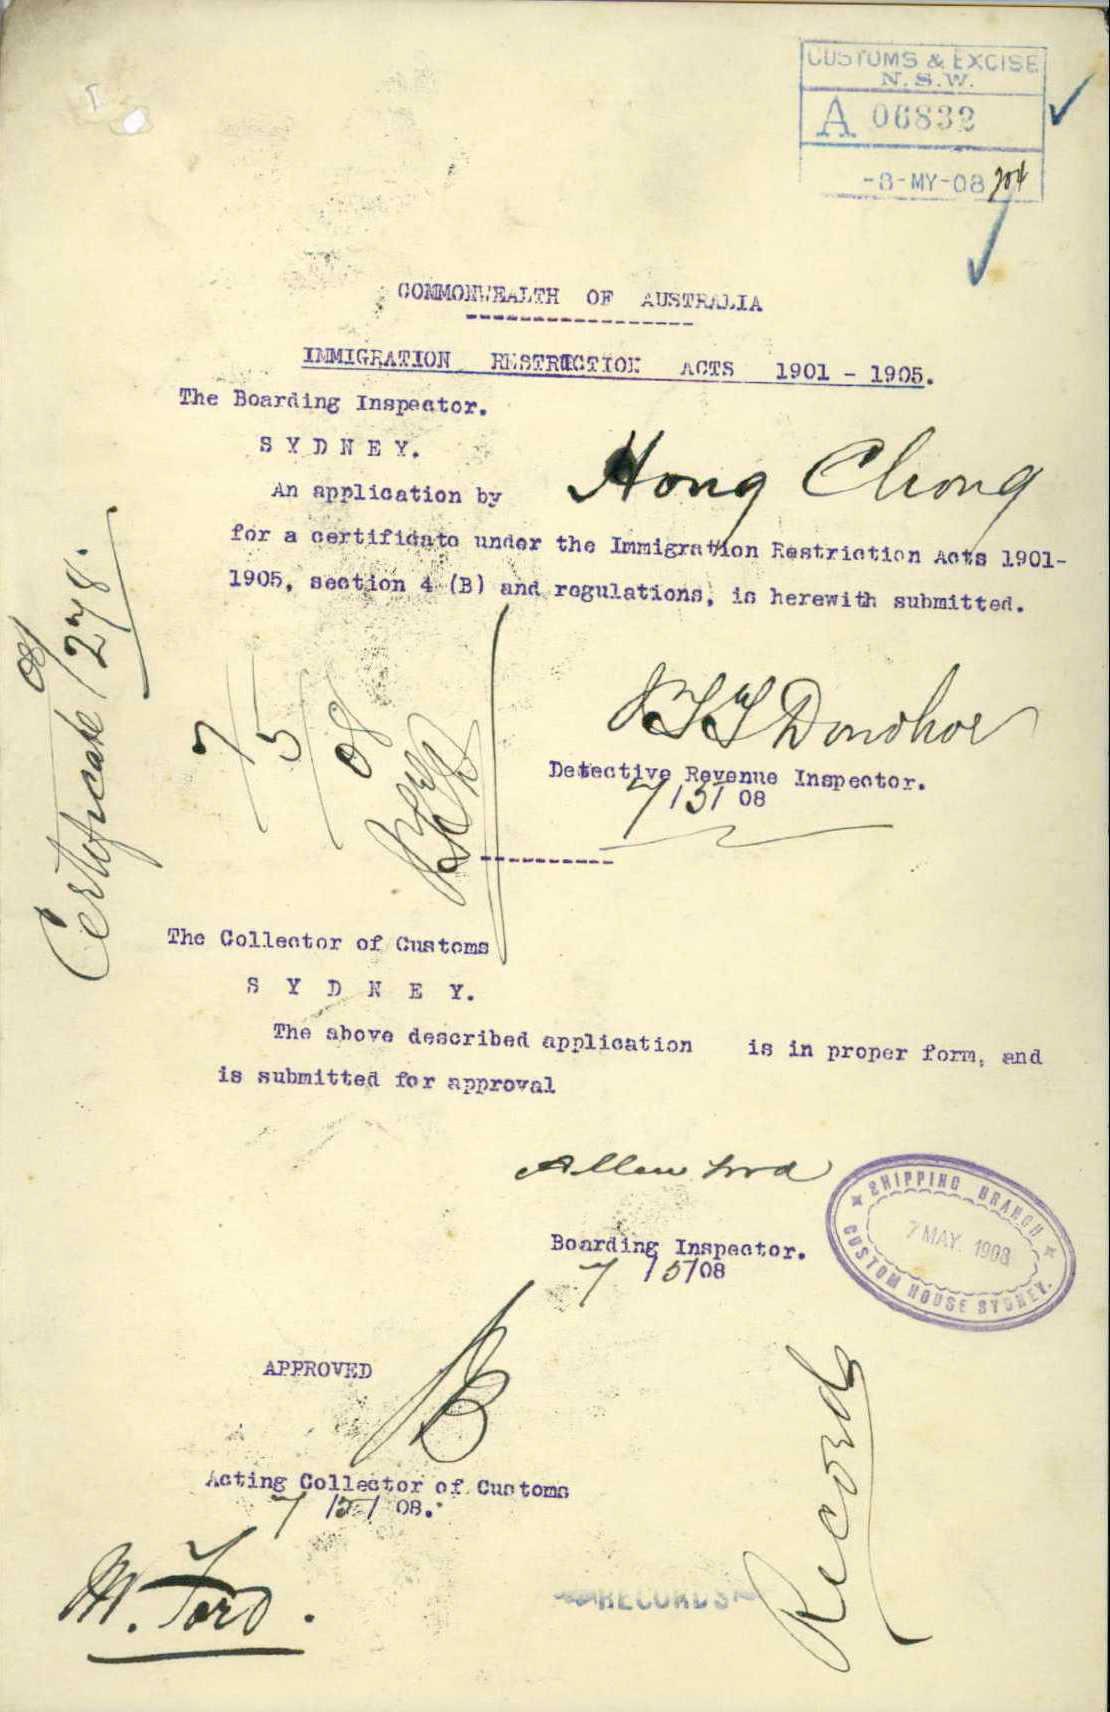 CUSTOMS & EXCISE
N.S.W.
A 06832
-8-MY-08
COMMONWEALTH OF AUSTRALIA
IMMIGRATION RESTRICTION ACTS 1901 - 1905.
The Boarding Inspector.
SYDNEY.
An application by Hong Chong
for a certificate under the Immigration Restriction Acts 1901-
1905, section 4 (B) and regulations, is herewith submitted.
Certificate 08/278.
7/5/08
J.T.T Donohoe
Detective Revenue Inspector.
7/5/08
The Collector of Customs
SYDNEY.
The above described application is in proper form, and
is submitted for approval
Allen
Boarding Inspector.
7/5/08
SHIPPING BRANCH
7 MAY. 1908
CUSTOM HOUSE SYDNEY.
APPROVED
Acting Collector of Customs
7/5/08.
M. Ford.
RECORDS
Records